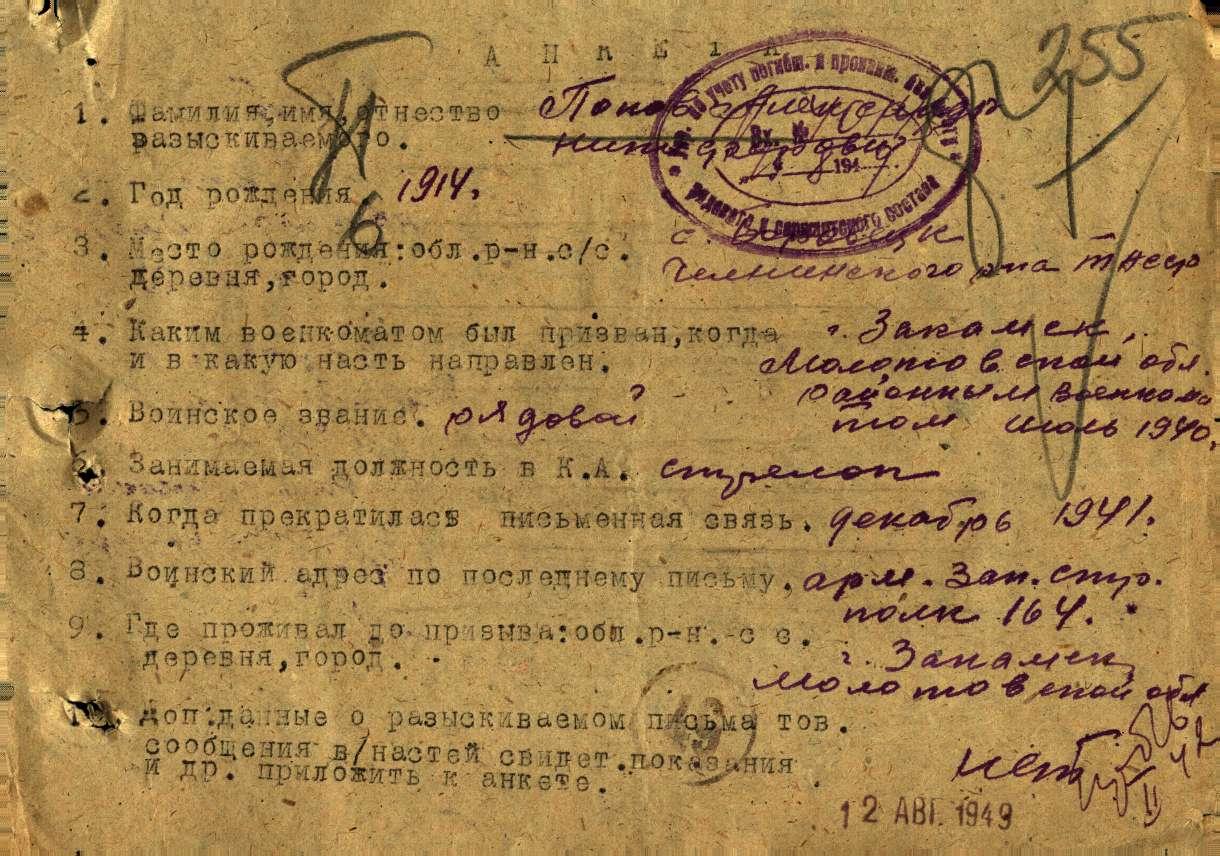 255
АНКЕТА
1. Фамилия, имя, отчество Попов Александр
разыскиваемого.
2. Год рождения 1914.
6
3. Место рождения:обл.р-н.с/с. с.
деревня,город. Челнинского р-на ТАССР
4. Каким военкоматом был призван,когда г. Закамск,
и в какую насть направлен. Молотовской обл.
районным военкома
5. Воинское звание. рядовой том июль 1940,
6. Занимаемая должность в К.А. стрелок
7. Когда прекратилась письменная связь. декабрь 1941.
8. Воинский адрес по последнему письму, арм. Зап. стр.
полк 164.
9. Где проживал до призыва:обл.р-н.-с с.
деревня,город. г. Закамск,
Молотовской обл
10. доп.данные о разыскиваемом письма тов.
сообщения в/настей свидет.показания
и др. приложить к анкете. нет
43
12 АВГ. 1949
по учету погибш. и пропавш.
Вх. №
194
рядового и сержантского состава